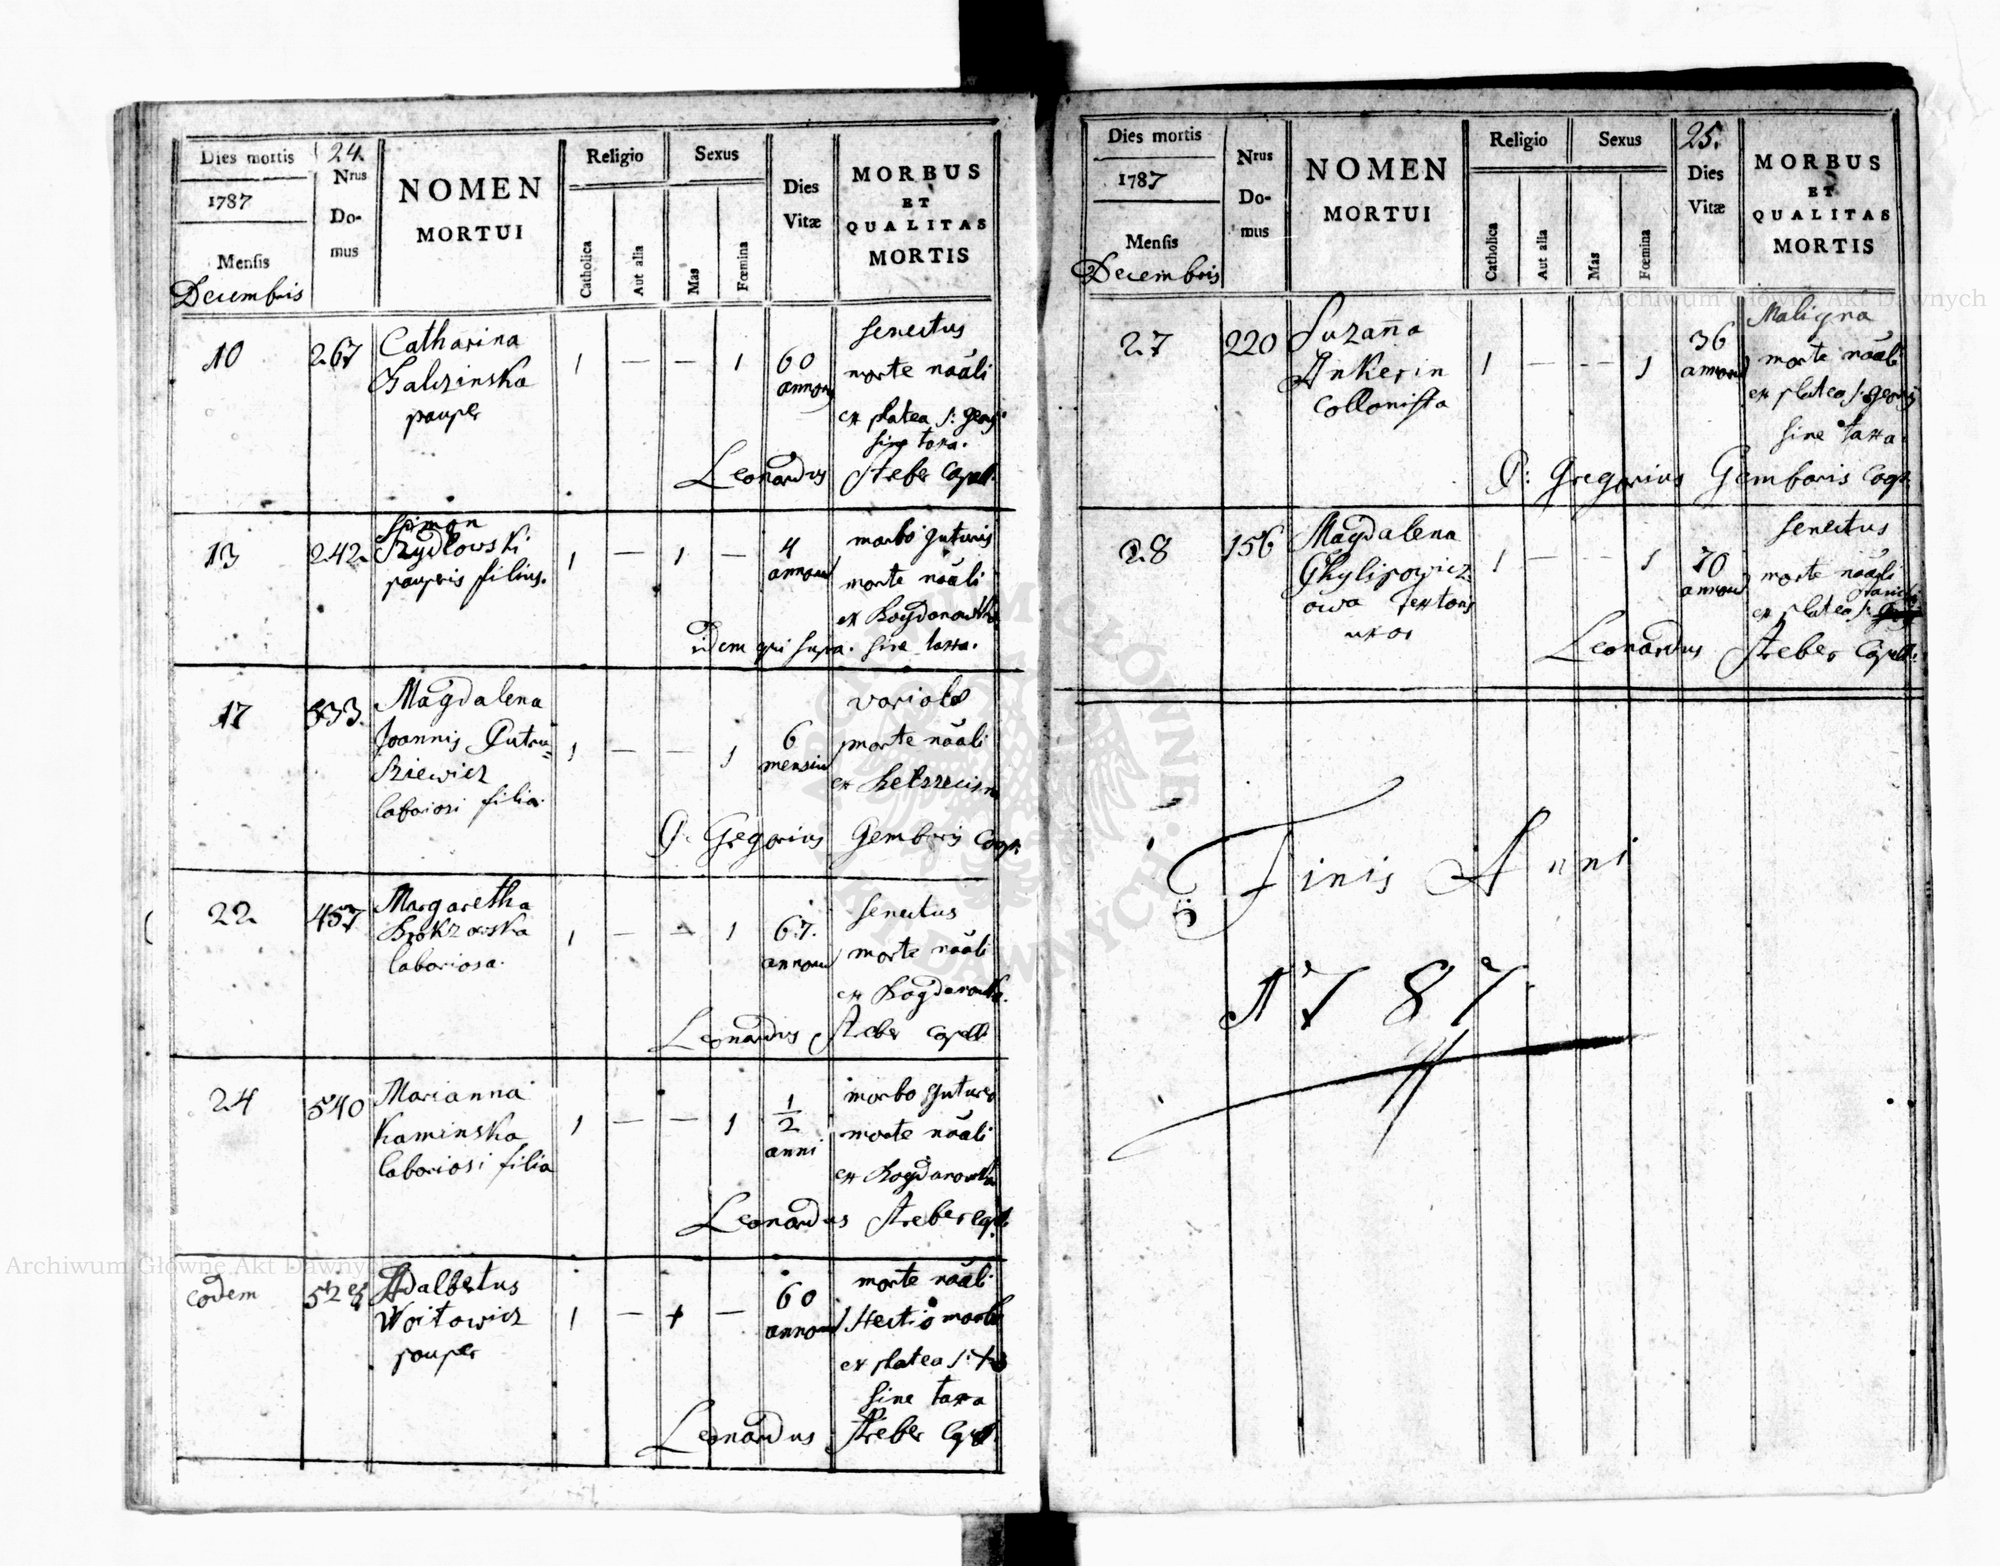 Dies mortis
24.
1787
Mensis
Decembris
Nrus
Do-
mus
NOMEN
MORTUI
Religio
Catholica
Aut alia
Sexus
Mas
Fœmina
Dies
Vitæ
MORBUS
ET
QUALITAS
MORTIS
10 267 Catharina
Zalczinska
pauper
1 — — 1 60
annorum
senectus
morte naäli
ex platea S: Georg:
sine taxa.
Leonardus Streber Capell:
13 242. Simon
Szydlowski
pauperis filius.
1 — 1 — 4
annorum
morbo guturis
morte naäli
ex Bogdanowka
idem qui supra. sine taxa.
17 333. Magdalena
Joannis Putru=
Sziewicz
laboriosi filia.
1 — — 1 6
mensium
variolæ
morte naäli
ex
P. Gregorius Gemboris Coop:
22 457 Margaretha
laboriosa.
1 — — 1 67.
annorum
senectus
morte naäli
ex Bogdanowka.
Leonardus Streber Capell:
24 540 Marianna
Kaminska
laboriosi filia
1 — — 1 1/2
anni
morbo guturis
morte naäli
ex Bogdanowka
Leonardus Streber Capl:
eodem Adalbertus
Woitowicz
pauper
1 — 1 — 60
annorum
morte naäli
Hectico morbo
ex platea S:
sine taxa
Leonardus Streber Capell:
Dies mortis
1787
Mensis
Decembris
Nrus
Do-
mus
NOMEN
MORTUI
Religio
Catholica
Aut alia
Sexus
Mas
Fœmina
25.
Dies
Vitæ
MORBUS
ET
QUALITAS
MORTIS
27 220 Suzaña
Ankerin
Collonista
1 — -- 1 36
annorum
Maligna
morte naäli
ex platea S: Georgij
sine taxa.
P: Gregorius Gemboris Coop:
28 156 Magdalena
Phylipowicz
owa Textoris
uxor
1 — — 1 70
annorum
senectus
morte naäli
ex platea S:
Leonardus Streber Capell:
Finis Anni
1787.
Archiwum Główne Akt Dawnych
Archiwum Główne Akt Dawnych
ARCHIWUM GŁÓWNE AKT DAWNYCH